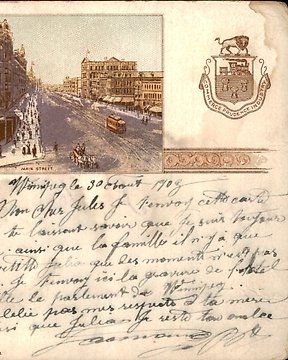 MAIN STREET.
COMMERCE PRUDENCE INDUSTRY
Winnipeg le 30 Aout 190
Mon cher Jules Je t'envoy cette carte
te laissant savoir que Je suis toujour
ainsi que la famille il n'y a que
Julia que des moments n'est pas
Je t'envoy ici la gravure de
le parlement de Winnipeg
pas mes respects a ta mere
si que Julia Je reste ton